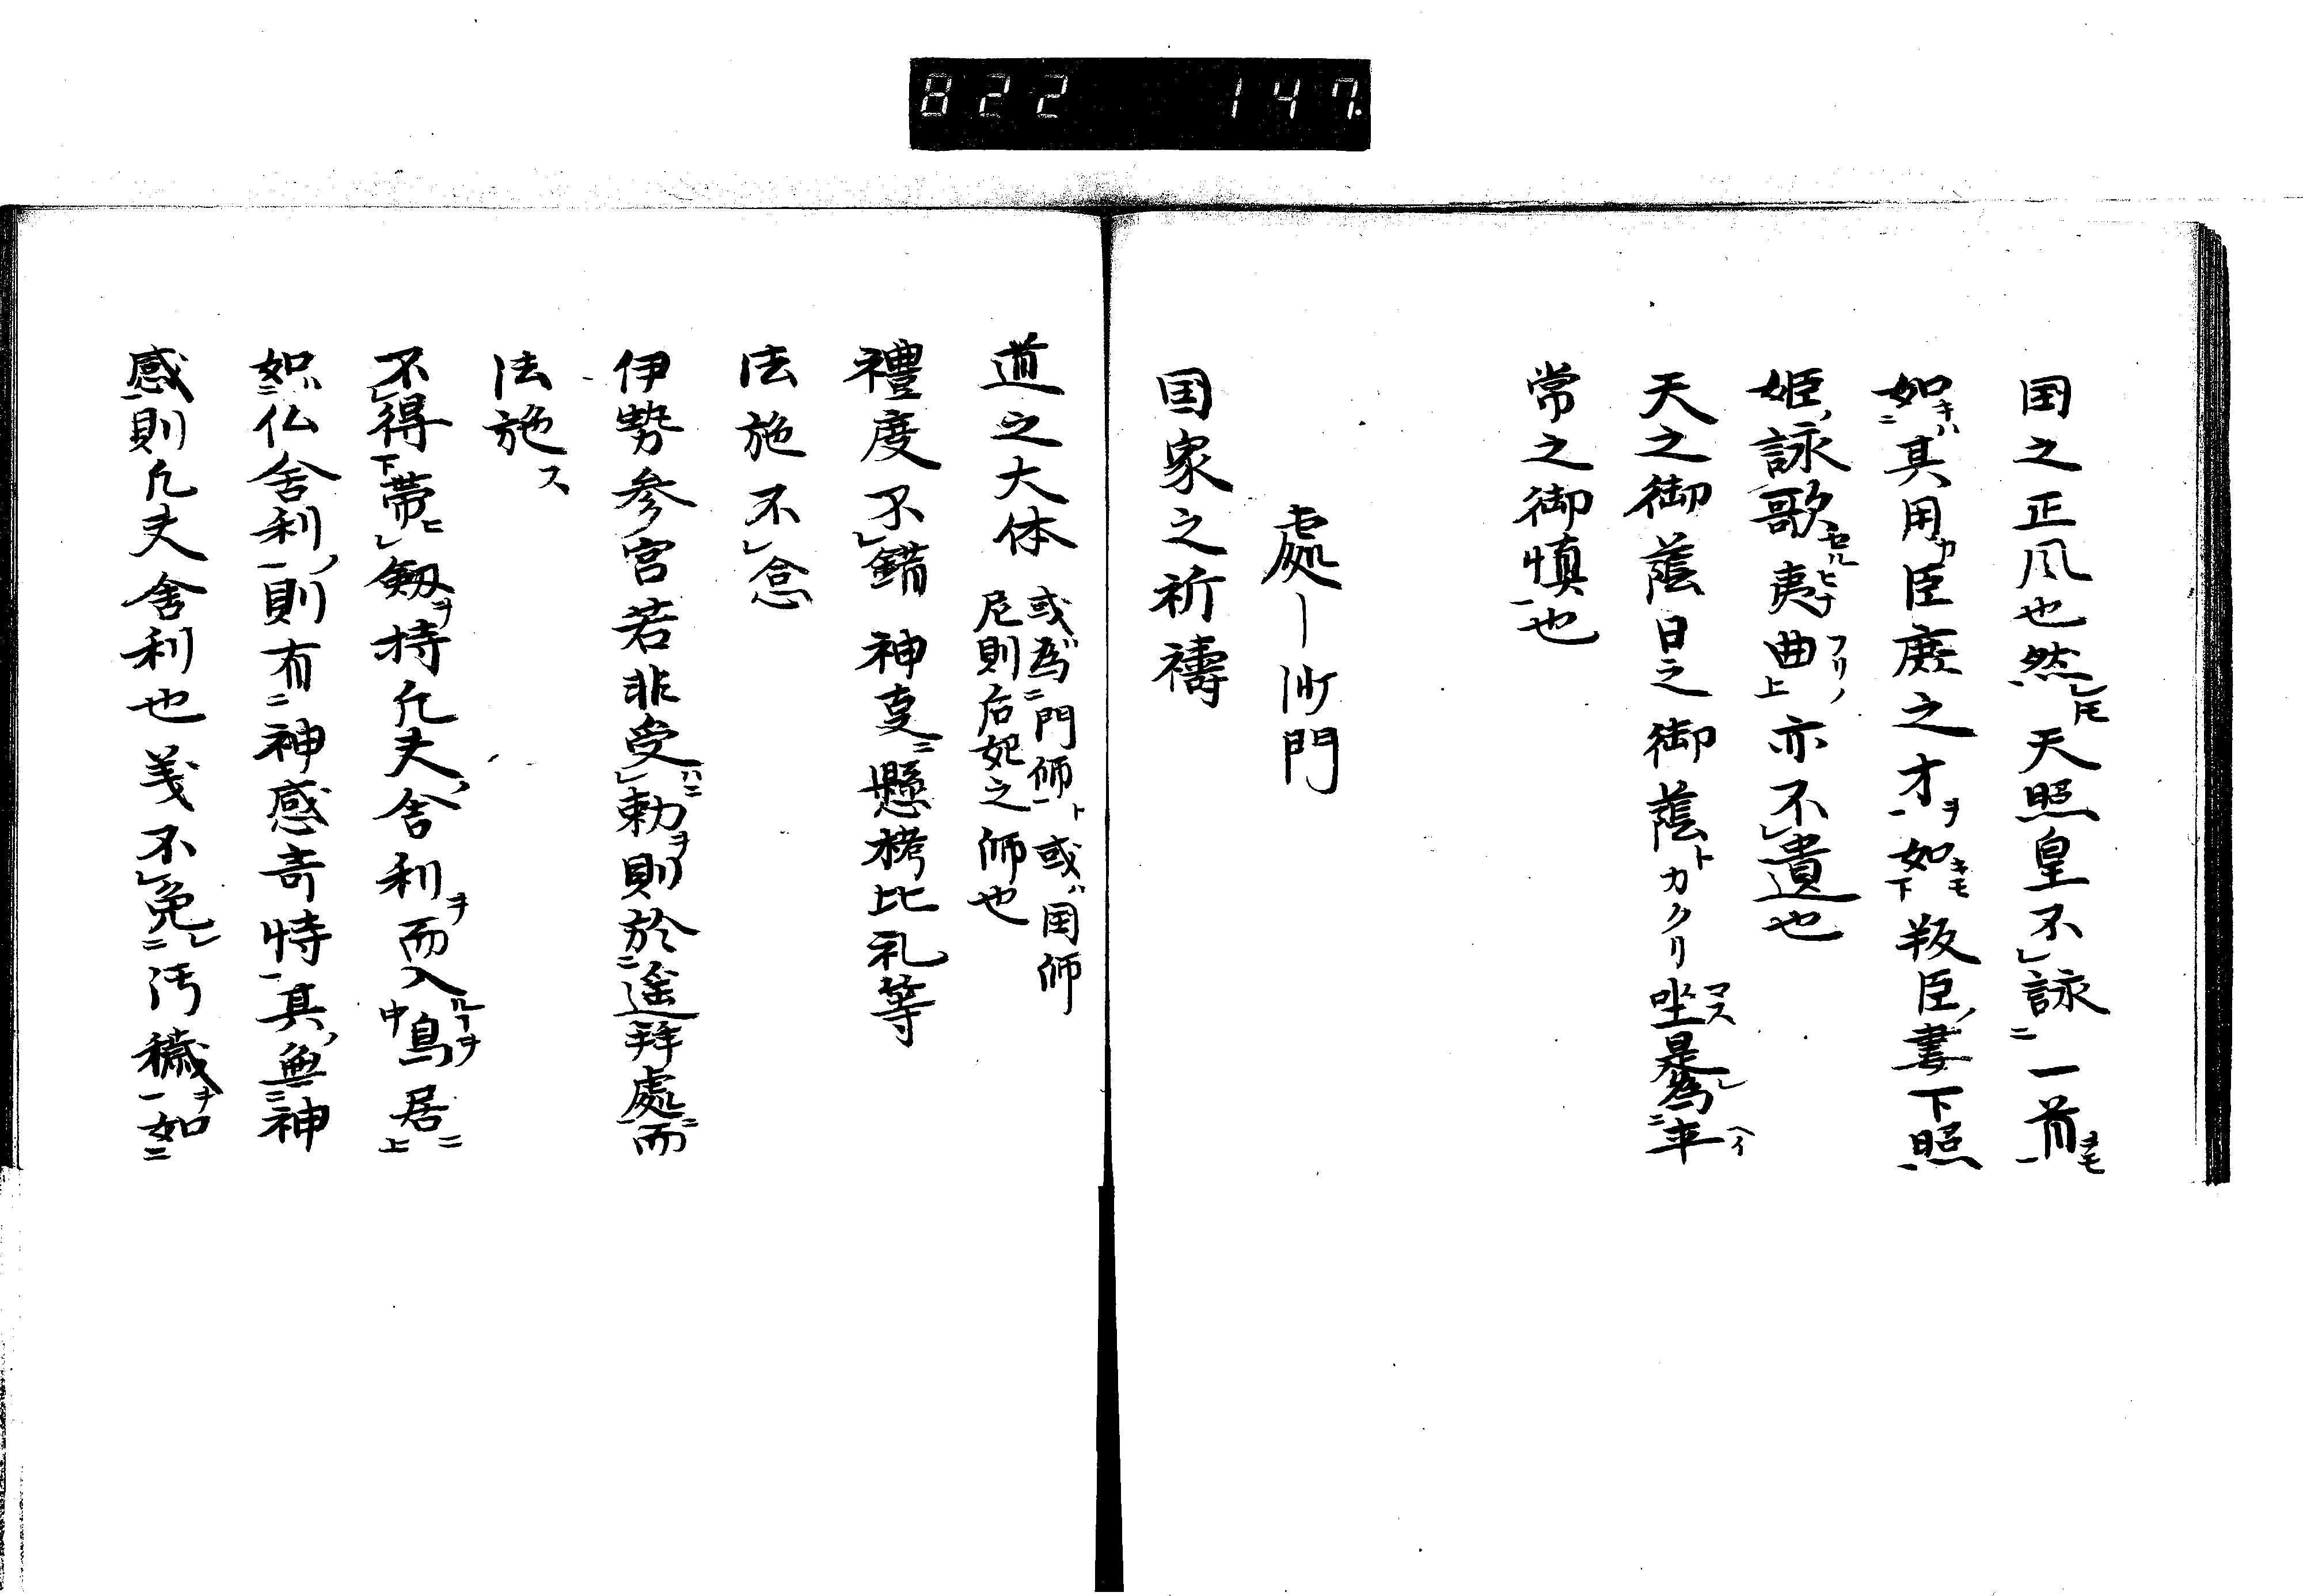 822 147.
国之正风也然レトモ天照皇不レ詠二一首一ヲモ
如二キハ其用カ臣庶之才一ヲ如下キモ叛臣ノ妻下照
姫ノ詠歌セル夷ヒナ曲フリノ上亦不レ遺也
天之御蔭日之御蔭トカクリ坐マス是レ為二平ヘイ
常之御慎一也
處――沙門
国家之祈禱
道之大体 或ハ為二門師一ト或ハ国師
尼則后妃之師也
禮度不レ錯神㕝ニ懸栲比礼等
法施不レ怠
伊勢参宮若非受レハニ勅ヲ則於二遥拜處一ニ而
法施ス
不レ得下帯ヒレ劔ヲ持凡夫ノ舎利ヲ而入ルヿヲ中鳥居ニ上
如二ハ仏舎利一ノ則有二神感奇特一其ノ無二神
感一則凡夫舎利也義不レ免レ二汚穢一ヲ如二